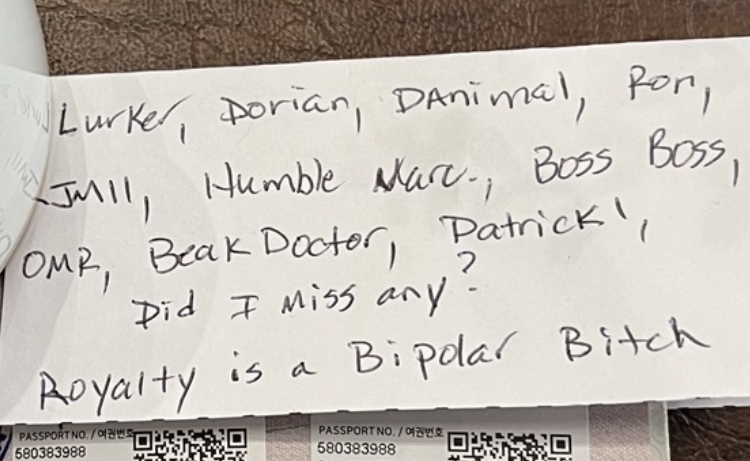 Lurker, Dorian, DAnimal, Ron,
JM11, Humble Marc., Boss Boss,
OMR, Beak Doctor, Patrick1,
Did I Miss any?
Royalty is a Bipolar Bitch
PASSPORT NO. / 여권번호 PASSPORT NO. / 여권번호
580383988 580383988